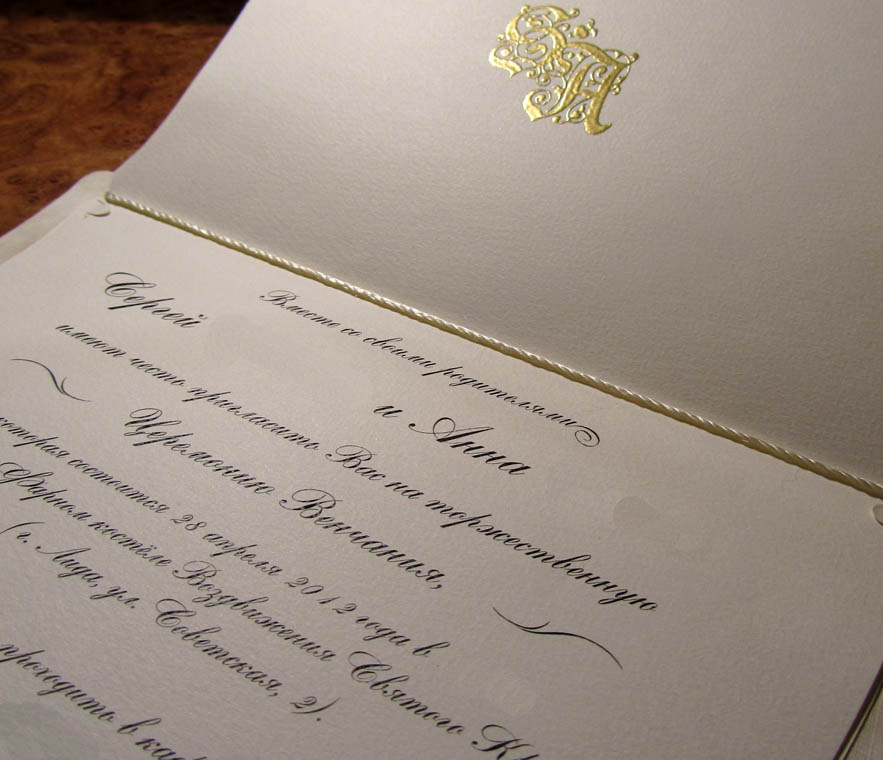 Вместе со своими родителями
Сергей и Анна
имеют честь пригласить Вас на торжественную
Церемонию Венчания,
которая состоится 28 апреля 2012 года в
Фарном костёле Воздвижения Святого
(г. Лида, ул. Советская, 2).
проходить в